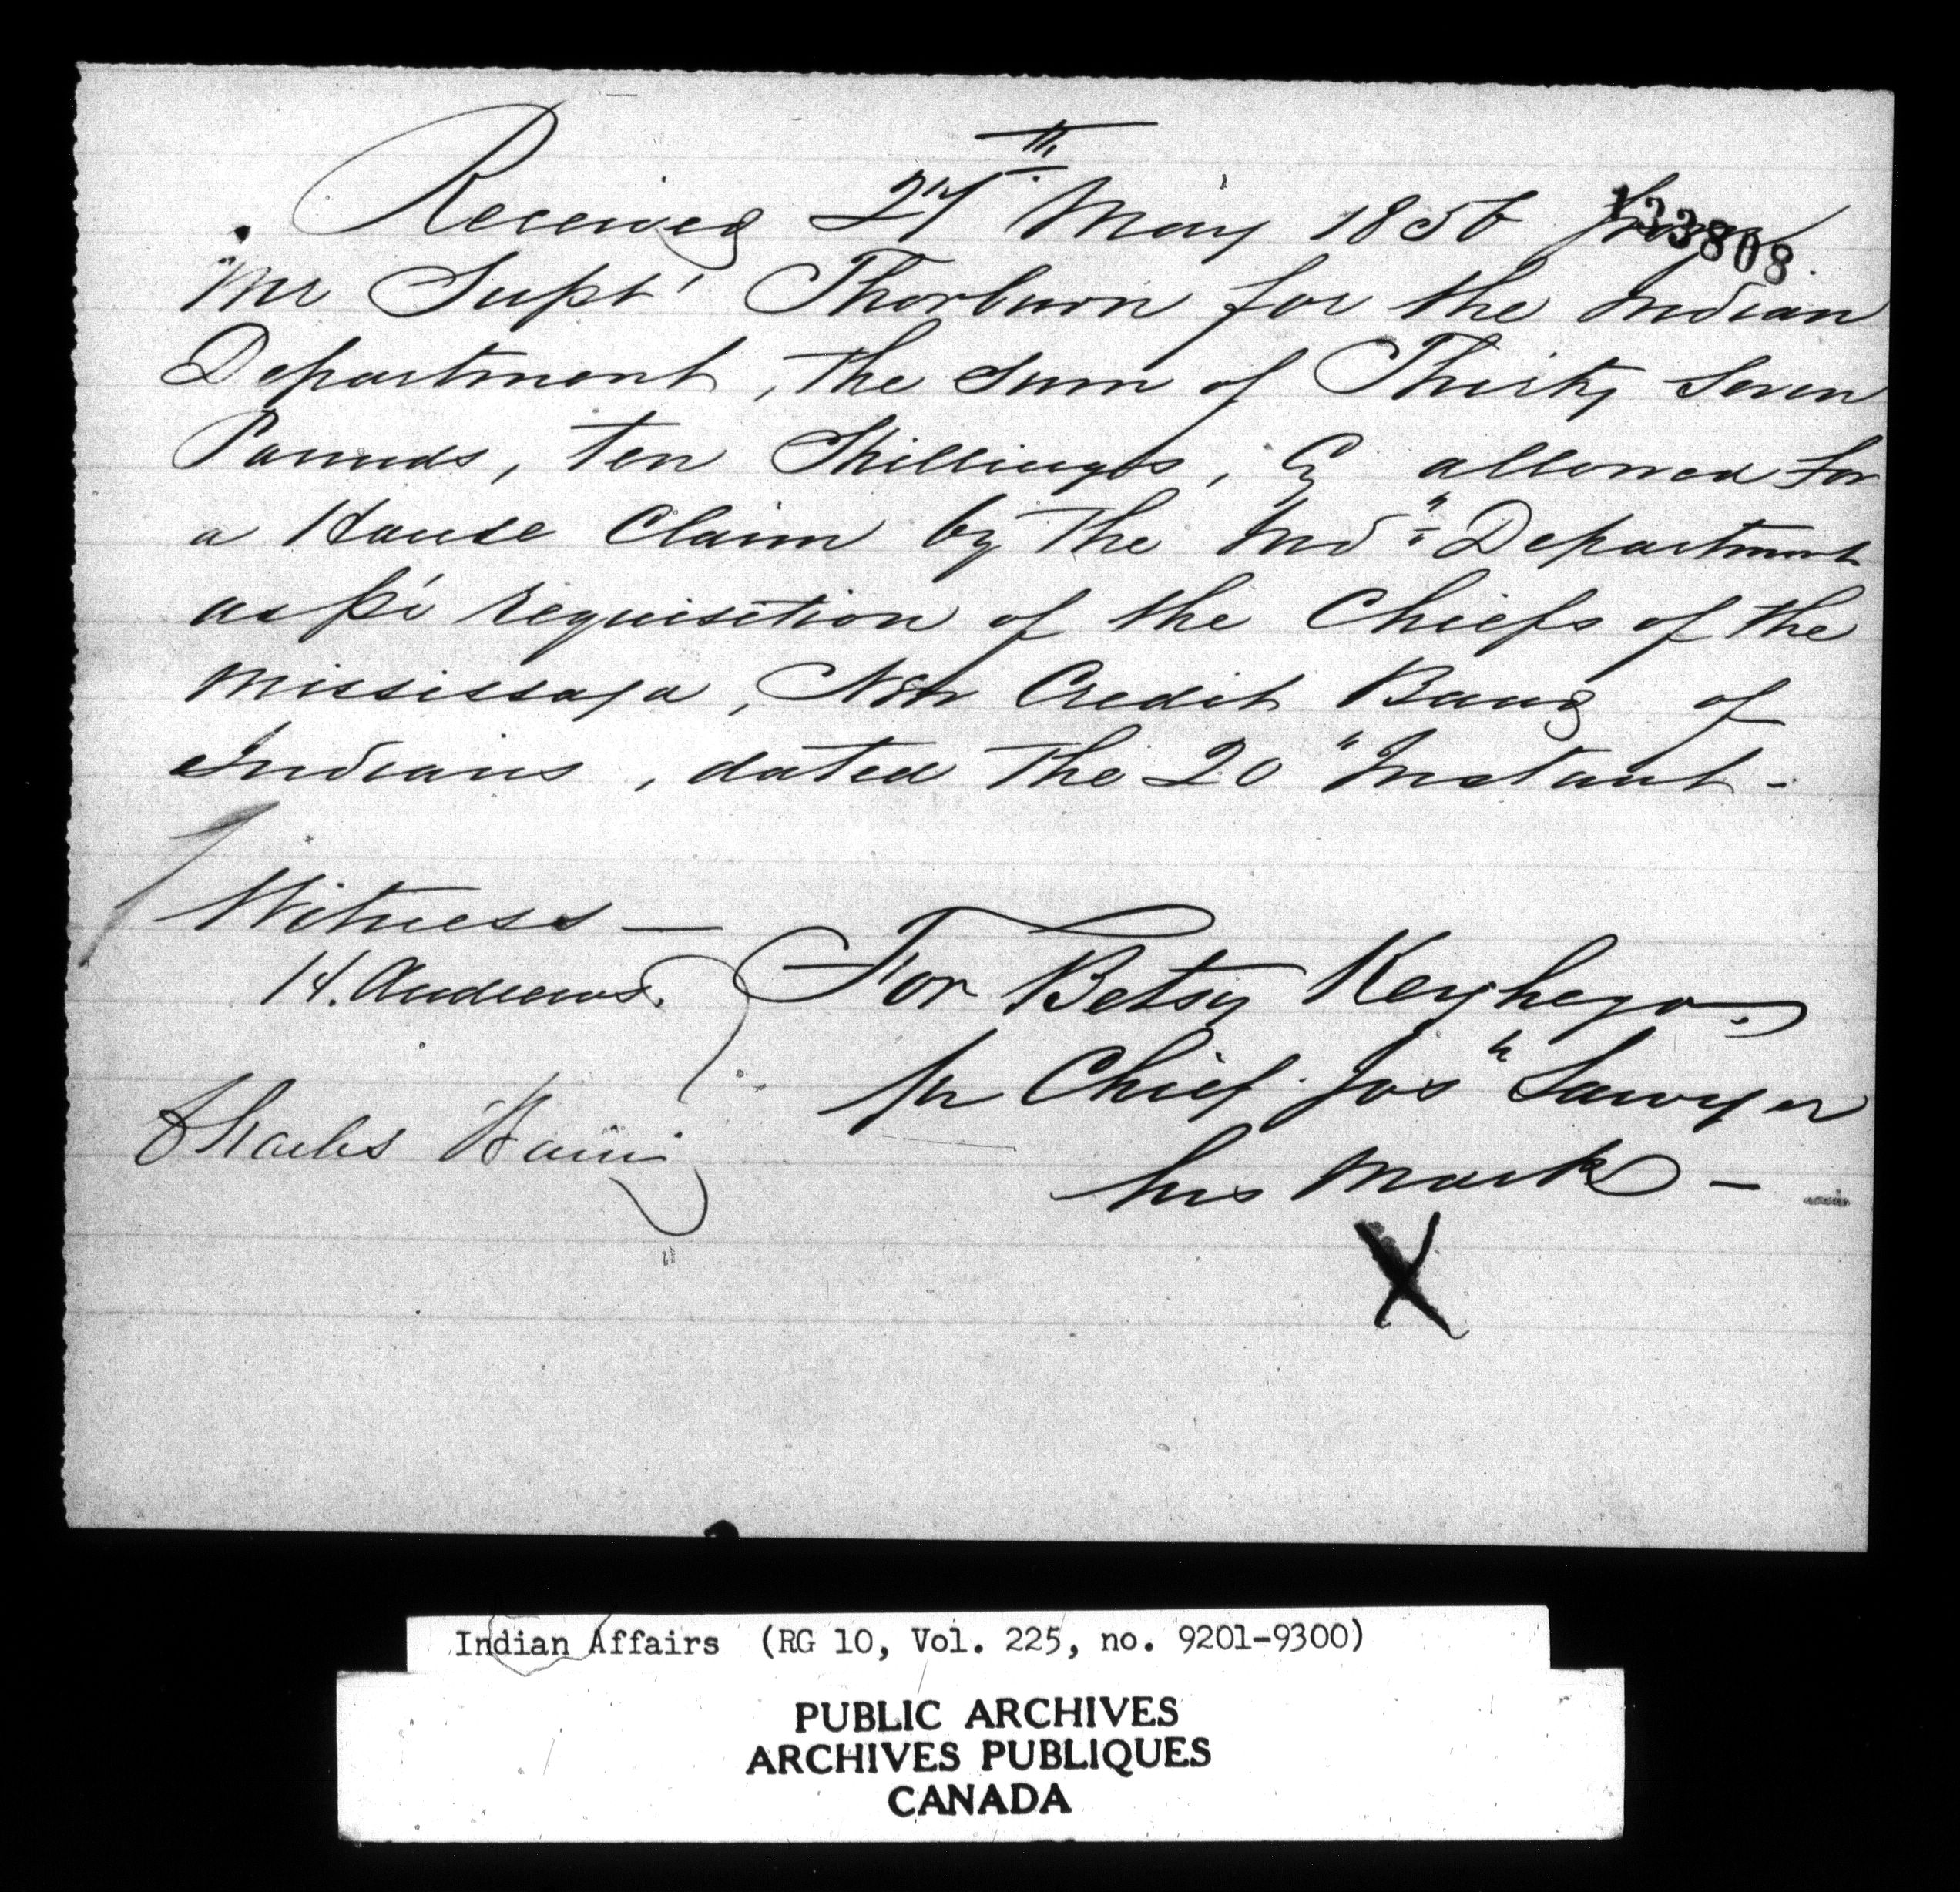 133808.
Received 27th May 1856 from
Mr Supt Thorburn for the Indian
Department, the Sum of Thirty Seven
Pounds, ten Shillings, Cy allowed for
a House Claim by the Indn Department
as pr requisition of the Chiefs of the
Mississaga, New Credit Band of
Indians, dated the 20" Instant -
Witness —
H. Andrews.
For Betsy Keghego
pr Chief Josh Sawyer
Charles
his mark —
X
Indian Affairs (RG 10, Vol. 225, no. 9201-9300)
PUBLIC ARCHIVES
ARCHIVES PUBLIQUES
CANADA